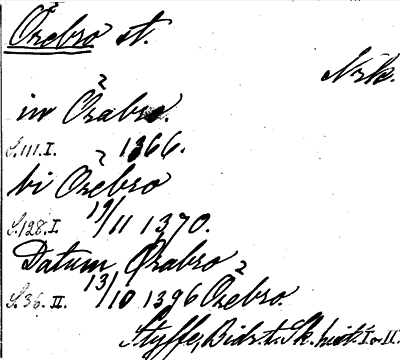 Örebro st.
Nrk.
in Örabro.
S. 111. I. 1366.
bi Örebro
S. 128. I. 19/11 1370.
Datum Ørabro
S. 36. II. 13/10 1396 Örebro.
Styffe, Bidr. t. Sk. hist. I o. II.